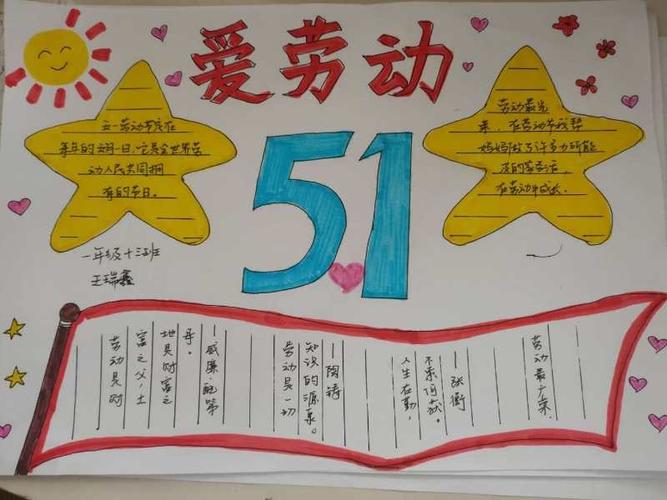 爱劳动
五一劳动节定在
每年的五月一日.它是全世界劳
动人民共同拥
有的节日.
劳动最光
荣,在劳动节我帮
妈妈做了许多力所能
及的家务活,
在劳动中成长.
51
一年级十三班
王瑞鑫
劳动是财
富之父,土
地是财富之
母。
—威廉·配第
劳动是一切
知识的源泉。
—陶铸
人生在勤,
不索何获。
—张衡
劳动最光荣.